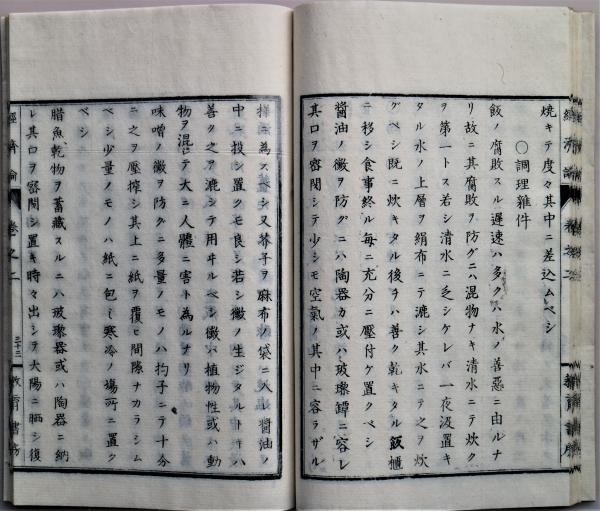 燒キテ度々其中ニ差込ムベシ
〇調理雜件
飯ノ腐敗スル遲速ハ多クハ水ノ善惡ニ由ルナ
リ故ニ其腐敗ヲ防グニハ混物ナキ清水ニテ炊ク
ヲ第一トス若シ清水ニ乏シケレバ一夜波置キ
タル水ノ上層ヲ絹布ニテ漉シ其水ニテ之ヲ炊
グベシ既ニ炊キタル後チハ善ク乾キタル飯櫃
ニ移シ食事終ル毎ニ充分ニ壓付ケ置クベシ
醬油ノ黴ヲ防グニハ陶器カ或ハ玻瓈罎ニ容レ
其口ヲ密閉シテ少シモ空氣ノ其中ニ容ラザル
樣ニ為スベシ又芥子ヲ麻布ノ袋ニ入レ醬油ノ
中ニ投シ置クモ良シ若シ黴ノ生ジタルトキハ
善ク之ヲ漉シテ用ヰルベシ黴ハ植物性或ハ動
物ヲ混ジテ大ニ人體ニ害ト為ルナリ
味噌ノ黴ヲ防グニ多量ノモノハ杓子ニテ十分
ニ之ヲ壓搾シ其上ニ紙ヲ覆ヒ間隙ナカラシム
ベシ少量ノモノハ紙ニ包ミ寒冷ノ場所ニ置ク
ベシ
腊魚乾物ヲ蓄藏スルニハ玻瓈器或ハ陶器ニ納
レ其口ヲ密閉シ置キ時々出シテ大陽ニ晒シ復
經濟論 卷之二 三十二